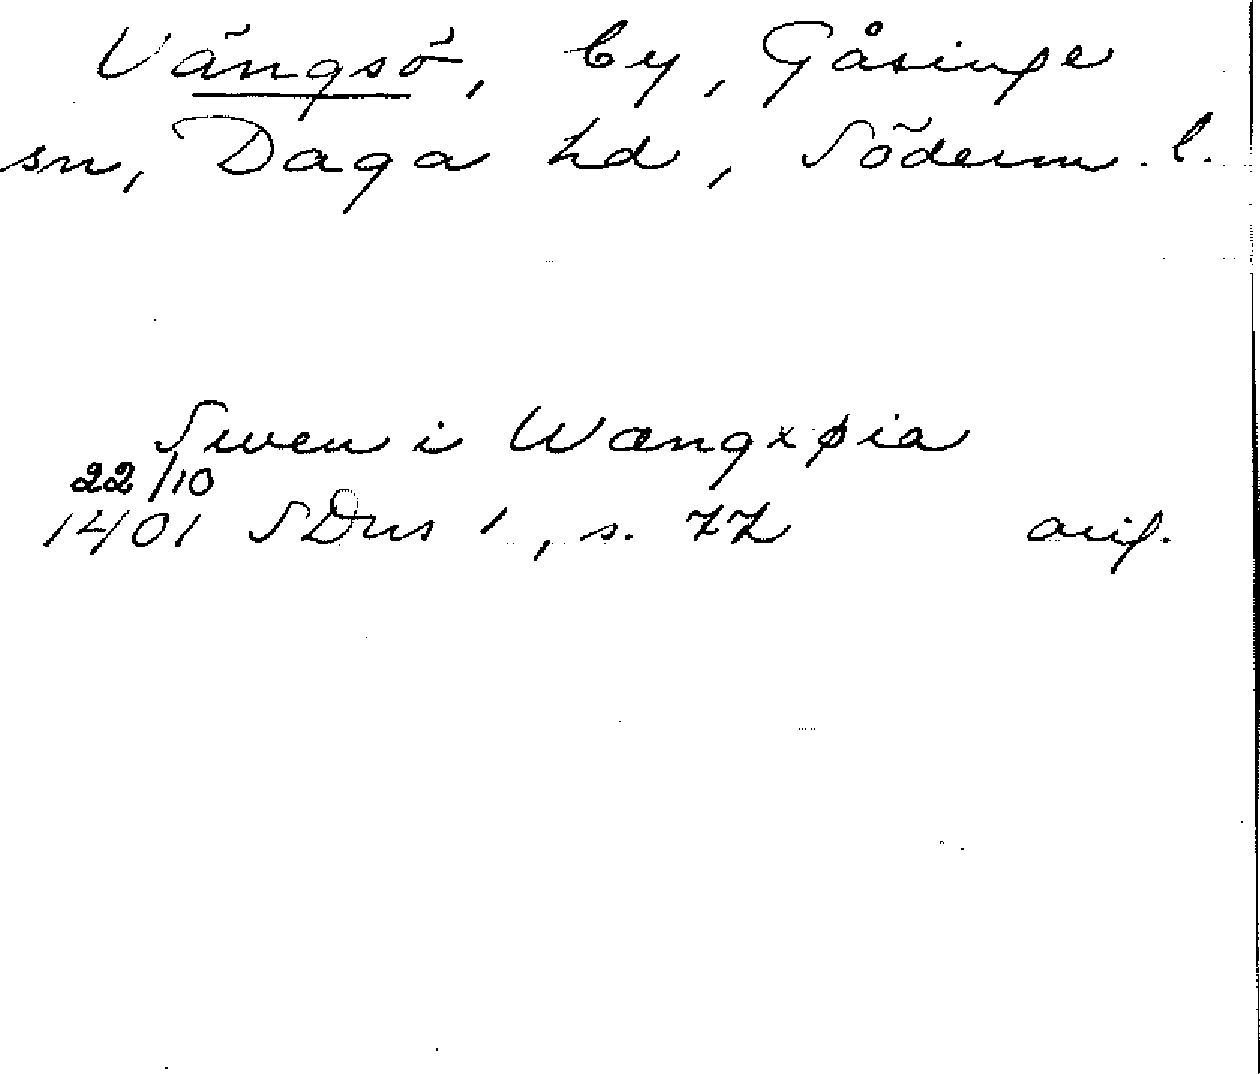 Vängsö, by, Gåsinge
sn, Daga hd, Söderm. l.
Swen i Wængxøia
22/10
1401 SDns 1, s. 77 orig.